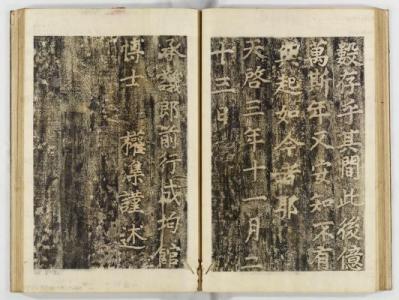 數存乎其間此後億
萬斯年又安知不有
興起如今者耶
天啓三年十一月二
十三日
承議郎前行成均館
博士 權集謹述